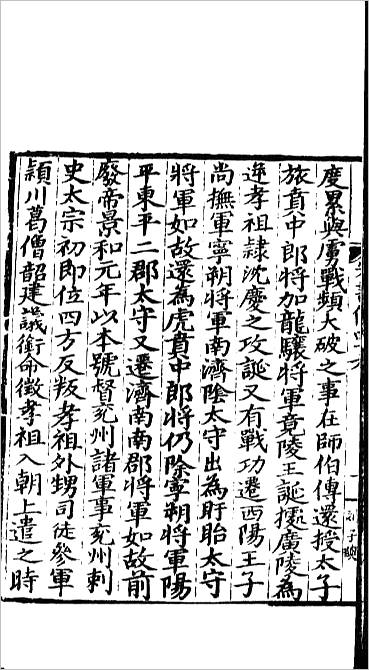 度累與虜戰頻大破之事在師伯傳還授太子
旅賁中郎將加龍驤將軍竟陵王誕據廣陵為
逆孝祖隸沈慶之攻誕又有戰功遷西陽王子
尚撫軍寧朔將軍南濟陰太守出為盱眙太守
將軍如故還為虎賁中郎將仍除寧朔將軍陽
平東平二郡太守又遷濟南南郡將軍如故前
廢帝景和元年以本號督兗州諸軍事兗州刺
史太宗初即位四方反叛孝祖外甥司徒參軍
潁川葛僧韶建議銜命徵孝祖入朝上遣之時